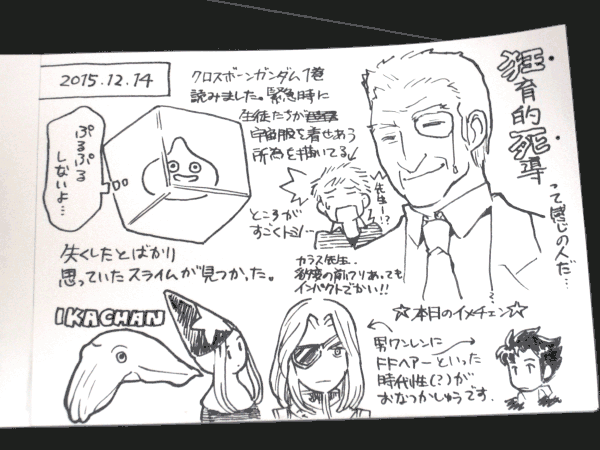 2015.12.14
クロスボーンガンダム1巻
読みました。緊急時に
生徒たちが
宇宙服を着せあう
所為を描いてる
ところが
すごくトシ…
先生ー!?
カラス先生、
物腰の前フリあっても
インパクトでかい!!
狂育的
死導
って感じの人だ…
ぷるぷる
しないよ…
失くしたとばかり
思っていたスライムが見つかった。
IKACHAN
☆本日のイメチェン☆
男ワンレンに
FFヘアーといった
時代性(?)が
おなつかしゅうです。